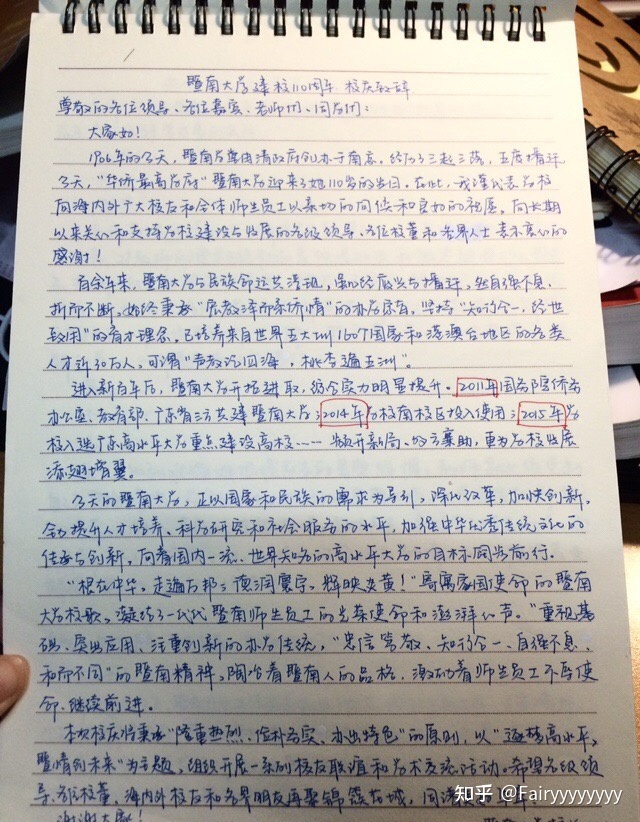 暨南大学建校110周年 校庆致辞
尊敬的各位领导、各位嘉宾、老师们、同学们:
大家好!
1906年的今天,暨南学堂由清政府创办于南京。经历了三起三落,五度播迁
今天,"华侨最高学府"暨南大学迎来了她110岁的生日。在此,我谨代表学校
向海内外广大校友和全体师生员工以亲切的问候和良好的祝愿,向长期
以来关心和支持学校建设与发展的各级领导、各位校董和各界人士表示衷心的
感谢!
百余年来,暨南大学与民族命运共浮现,虽屡经废兴与播迁,然自强不息,
折而不断。始终秉承"宏教泽而系侨情"的办学宗旨,坚持"知行合一、经世
致用"的育才理念,已培养来自世界五大洲160个国家和港澳台地区的各类
人才近30万人,可谓"声教讫四海,桃李遍五洲"。
进入新百年后,暨南大学开拓进取,综合实力明显提升。2011年国务院侨务
办公室、教育部、广东省三方共建暨南大学;2014年学校南校区投入使用;2015年学
校入选广东高水平大学重点建设高校……频开新局、如云襄助,更为学校发展
添翅增翼。
今天的暨南大学,正以国家和民族的需求为导引,深化改革,加快创新,
全力提升人才培养、科学研究和社会服务的水平,加强中华优秀传统文化的
传承与创新,向着国内一流、世界知名的高水平大学的目标阔步前行。
"根在中华,走遍万邦;德润寰宇,辉映炎黄!"寄寓家国使命的暨南
大学校歌,凝结了一代代暨南师生员工的光荣使命和澎湃心声。"重视基
础、突出应用、注重创新的办学传统,"忠信笃敬、知行合一、自强不息、
和而不同"的暨南精神,陶冶着暨南人的品格,激励着师生员工不辱使
命、继续前进。
本次校庆将秉承"隆重热烈、俭朴务实、办出特色"的原则,以"逐梦高水平,
暨情创未来"为主题,组织开展一系列校友联谊和学术交流活动。希望各级领
导、各位校董、海内外校友和各界朋友再聚
谢谢大家!
知乎 @Fairyyyyyyyy